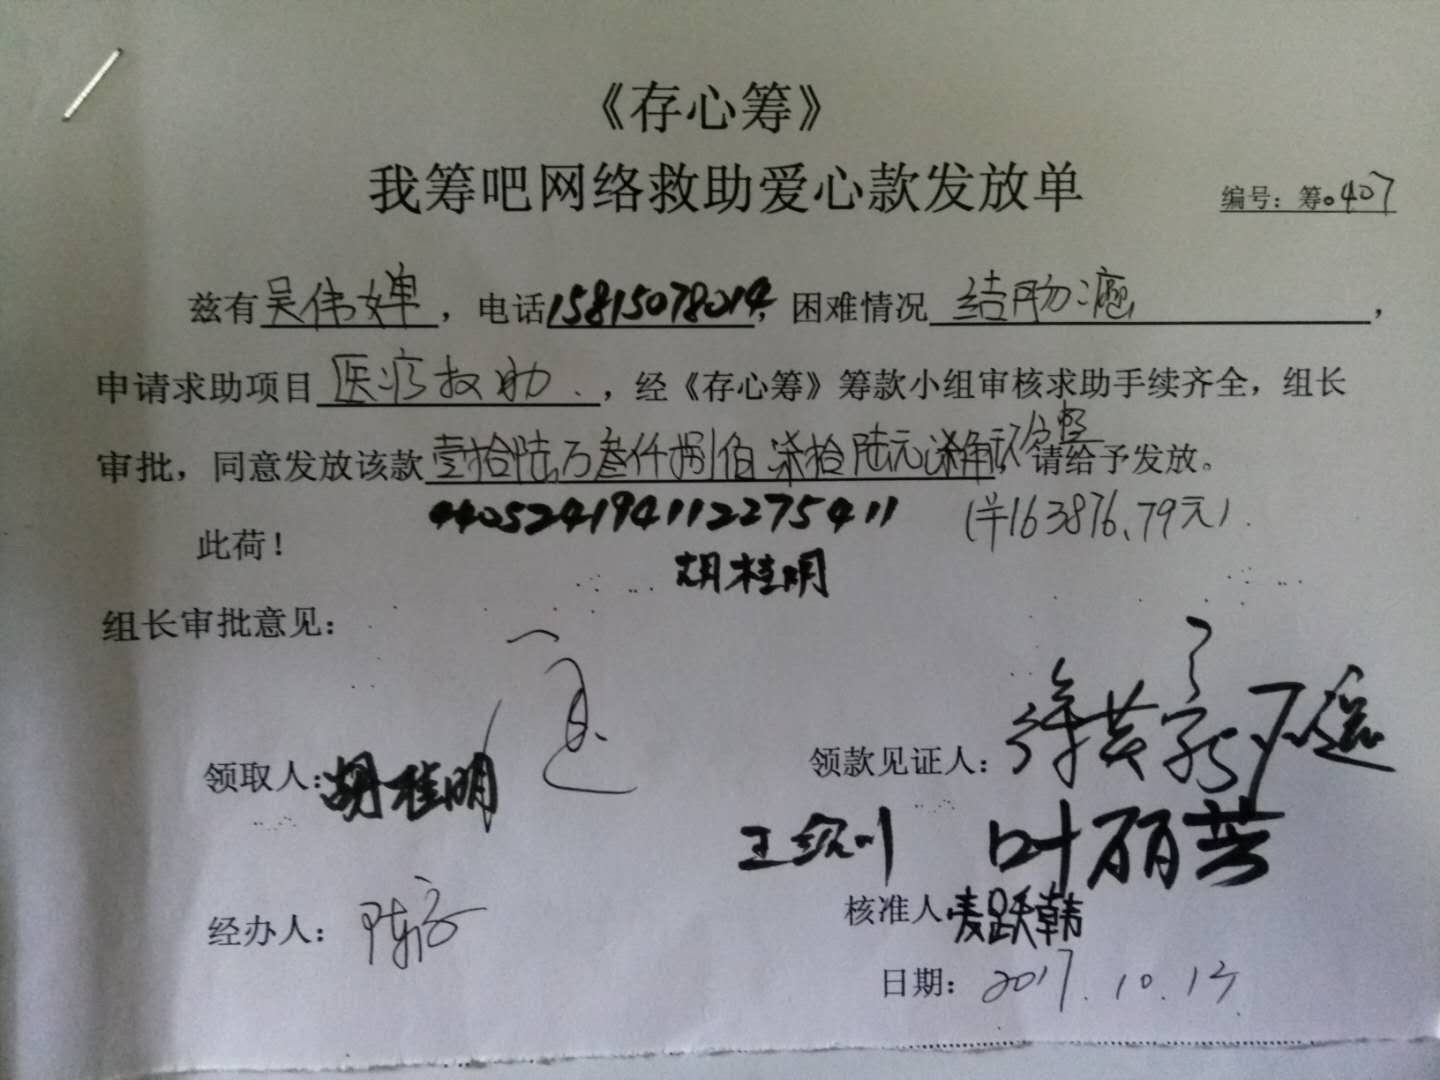 《存心筹》
我筹吧网络救助爱心款发放单
编号：筹0407
兹有吴伟婵，电话15815078014，困难情况结肠癌，
申请求助项目医疗救助，经《存心筹》筹款小组审核求助手续齐全，组长
审批，同意发放该款壹拾陆万叁仟捌佰柒拾陆元柒角玖分整请给予发放。
440524194112275411 (￥163876.79元).
此荷！
胡桂明
组长审批意见：
领取人：胡桂明 领款见证人：
叶丽芸
经办人： 核准人麦跃韩
日期：2017.10.13